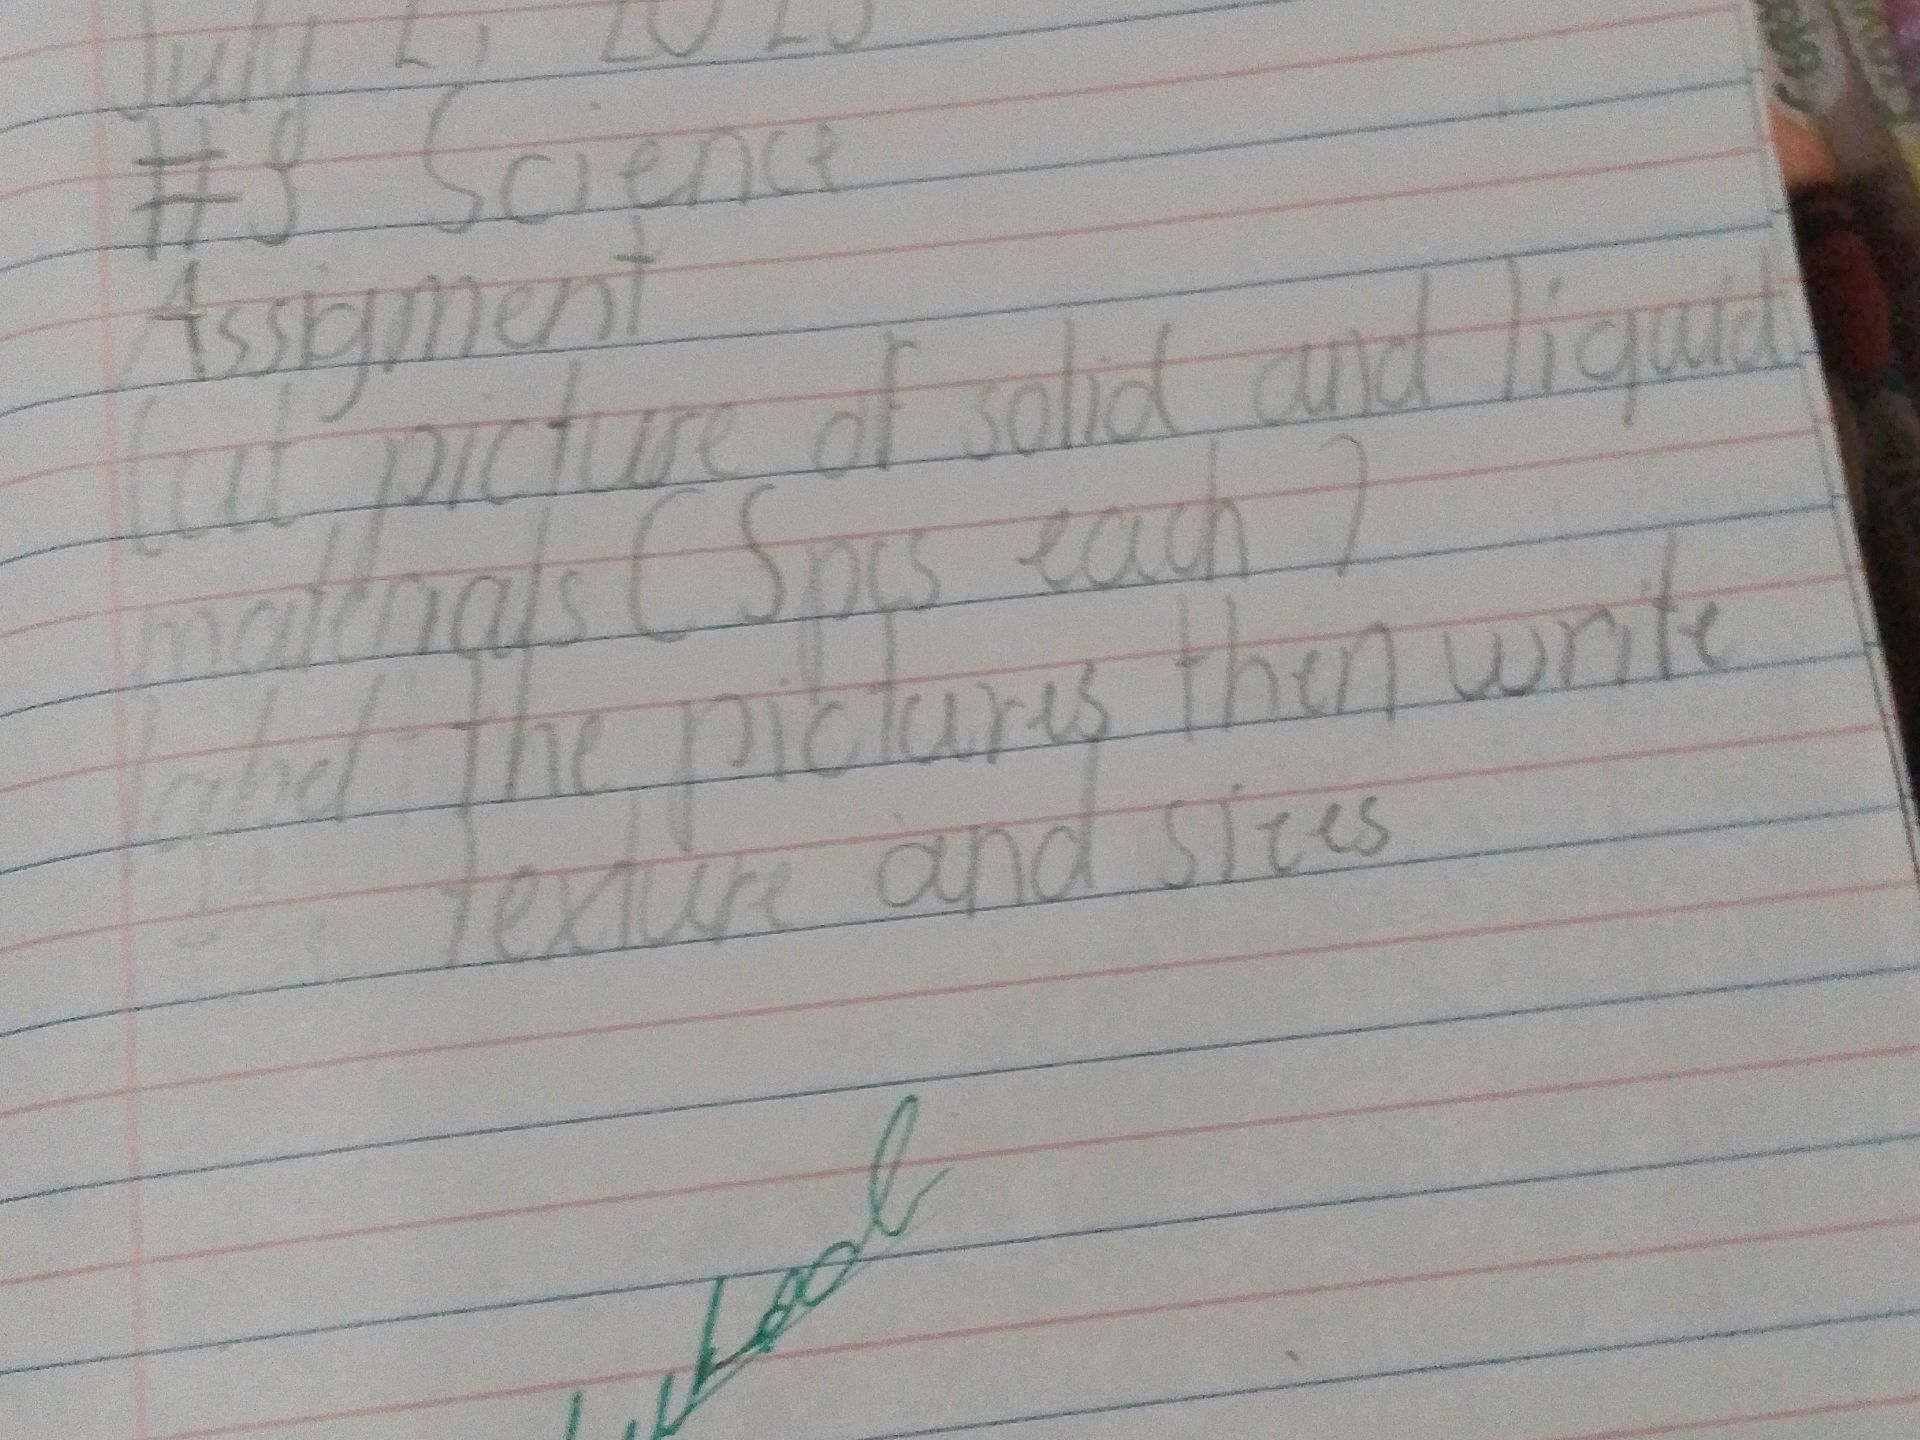 July 2, 2025
#3 Science
Assigment
Cut picture of solid and liquid
materials (5pcs each)
label the pictures then write
texture and sizes